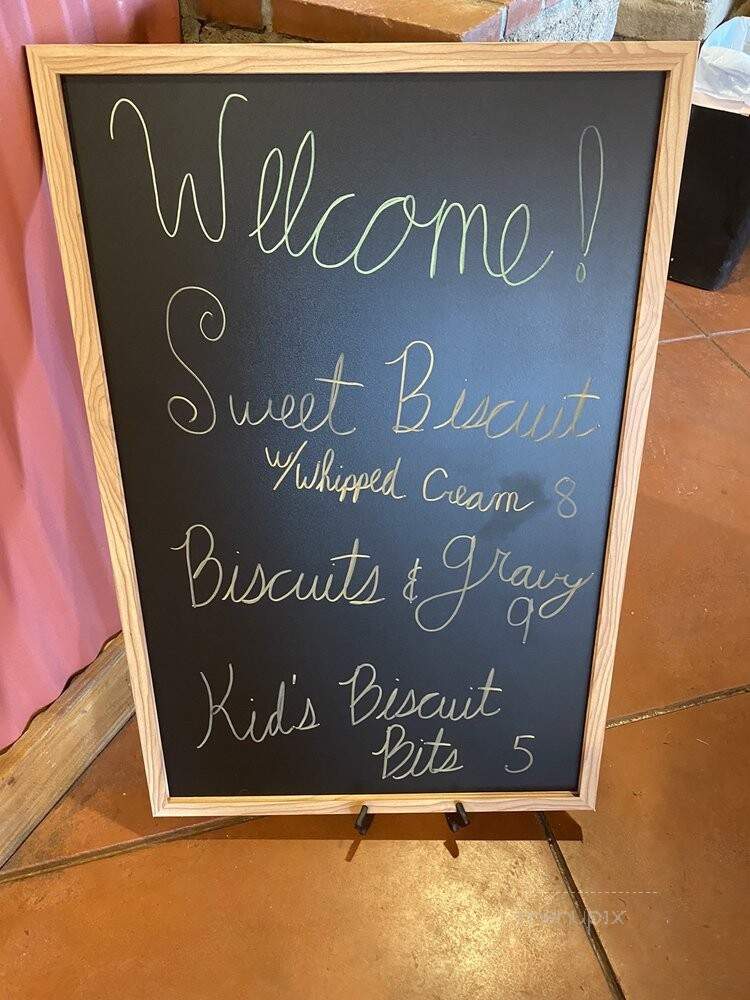 Welcome!
Sweet Biscuit
w/Whipped Cream 8
Biscuits & gravy
9
Kid's Biscuit
Bits 5
menupix